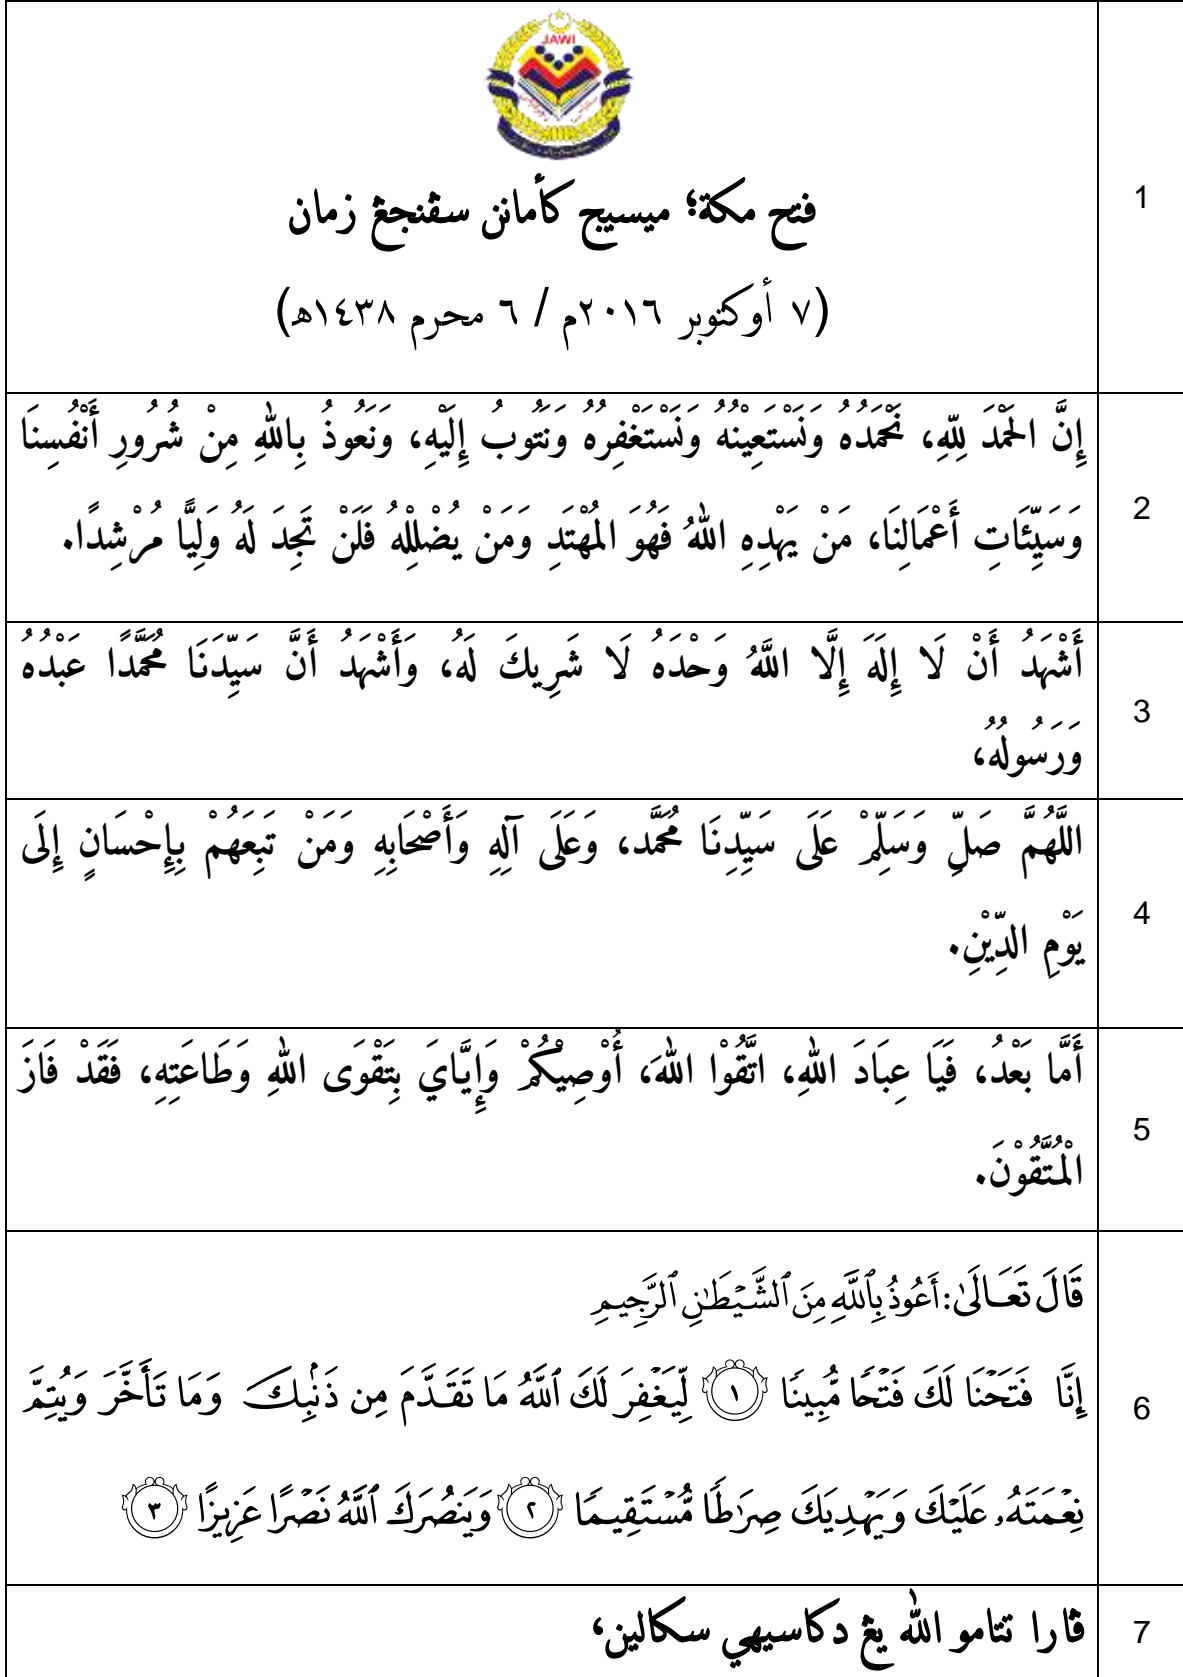 JAWI
1
فتح مكة؛ ميسيج كأمانن سڤنجڠ زمان
(٧ أوكتوبر ٢٠١٦م / ٦ محرم ١٤٣٨هـ)
2
إِنَّ الحَمْدَ لِلّٰهِ، نَحْمَدُهُ وَنَسْتَعِيْنُهُ وَنَسْتَغْفِرُهُ وَنَتُوبُ إِلَيْهِ، وَنَعُوذُ بِاللهِ مِنْ شُرُورِ أَنْفُسِنَا
وَسَيِّئَاتِ أَعْمَالِنَا، مَنْ يَهْدِهِ اللهُ فَهُوَ المُهْتَدِ وَمَنْ يُضْلِلْهُ فَلَنْ تَجِدَ لَهُ وَلِيًّا مُرْشِدًا.
3
أَشْهَدُ أَنْ لَا إِلَهَ إِلَّا اللَّهُ وَحْدَهُ لَا شَرِيكَ لَهُ، وَأَشْهَدُ أَنَّ سَيِّدَنَا مُحَمَّدًا عَبْدُهُ
وَرَسُولُهُ،
4
اللَّهُمَّ صَلِّ وَسَلِّمْ عَلَى سَيِّدِنَا مُحَمَّد، وَعَلَى آلِهِ وَأَصْحَابِهِ وَمَنْ تَبِعَهُمْ بِإِحْسَانٍ إِلَى
يَوْمِ الدِّيْنِ.
5
أَمَّا بَعْدُ، فَيَا عِبَادَ اللهِ، اتَّقُوْا اللهَ، أُوْصِيْكُمْ وَإِيَّايَ بِتَقْوَى اللهِ وَطَاعَتِهِ، فَقَدْ فَازَ
الْمُتَّقُوْنَ.
6
قَالَ تَعَالَىٰ: أَعُوذُ بِٱللَّهِ مِنَ ٱلشَّيْطَٰنِ ٱلرَّجِيمِ
إِنَّا فَتَحْنَا لَكَ فَتْحًا مُّبِينًا ١ لِّيَغْفِرَ لَكَ ٱللَّهُ مَا تَقَدَّمَ مِن ذَنۢبِكَ وَمَا تَأَخَّرَ وَيُتِمَّ
نِعْمَتَهُۥ عَلَيْكَ وَيَهْدِيَكَ صِرَٰطًا مُّسْتَقِيمًا ٢ وَيَنصُرَكَ ٱللَّهُ نَصْرًا عَزِيزًا ٣
7
ڤارا تتامو الله يڠ دكاسيهي سكالين،